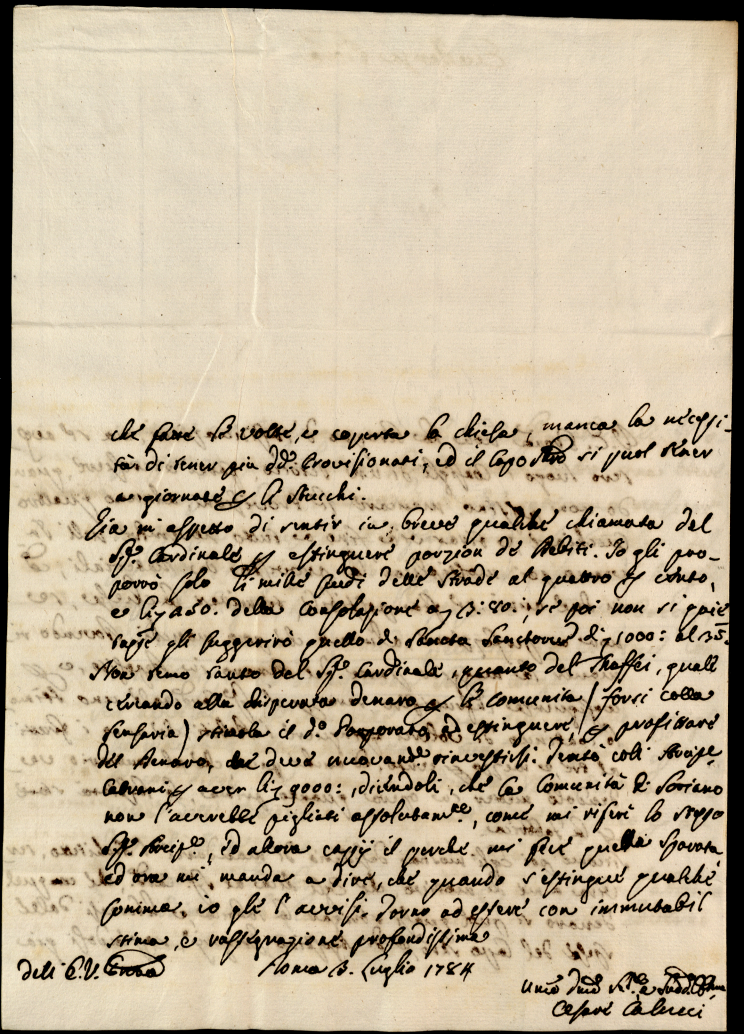 che fatte le volte, e coperta la chiesa, manca la necessi-
tà di tener più dd.i Provisionati, ed il Capo Mro si puol tener
a giornate p li stucchi.
Già mi aspetto di sentir in breve qualche chiamata del
Sig.r Cardinale p estinguere porzion de Debiti. Io gli pro-
porrò solo li mille scudi delle Strade al quattro p cento,
e li 450. della Consolazione a 3:80:, se poi non si
gli suggerirò quello di Sancta Sanctorum di 1000: al 3
Non temo tanto del Sig.r Cardinale, quanto del Maffei, quale
cercando alla disperata denaro p le Comunità / forsi colla
senseria) stimola il d.o Porporato ad estinguere, p profittare
del denaro, che deve nuovam.e rinvestirsi. Tentò coll'
Calvani p aver li 9000:, dicendoli, che la Comunità di Soriano
non l'averebbe pigliati assolutam.te, come mi riferì lo stesso
Sig.r, ed allora cappij il perche mi fece quella sparata
ed ora mi manda a dire, che quando s'estingue qualche
somma, io glie l'avvisi. Torno ad essere con immutabil
stima, e rassegnazione profondissima
dell'E.V. Roma 3. Luglio 1784
Umo Dmo
Cesare Calucci